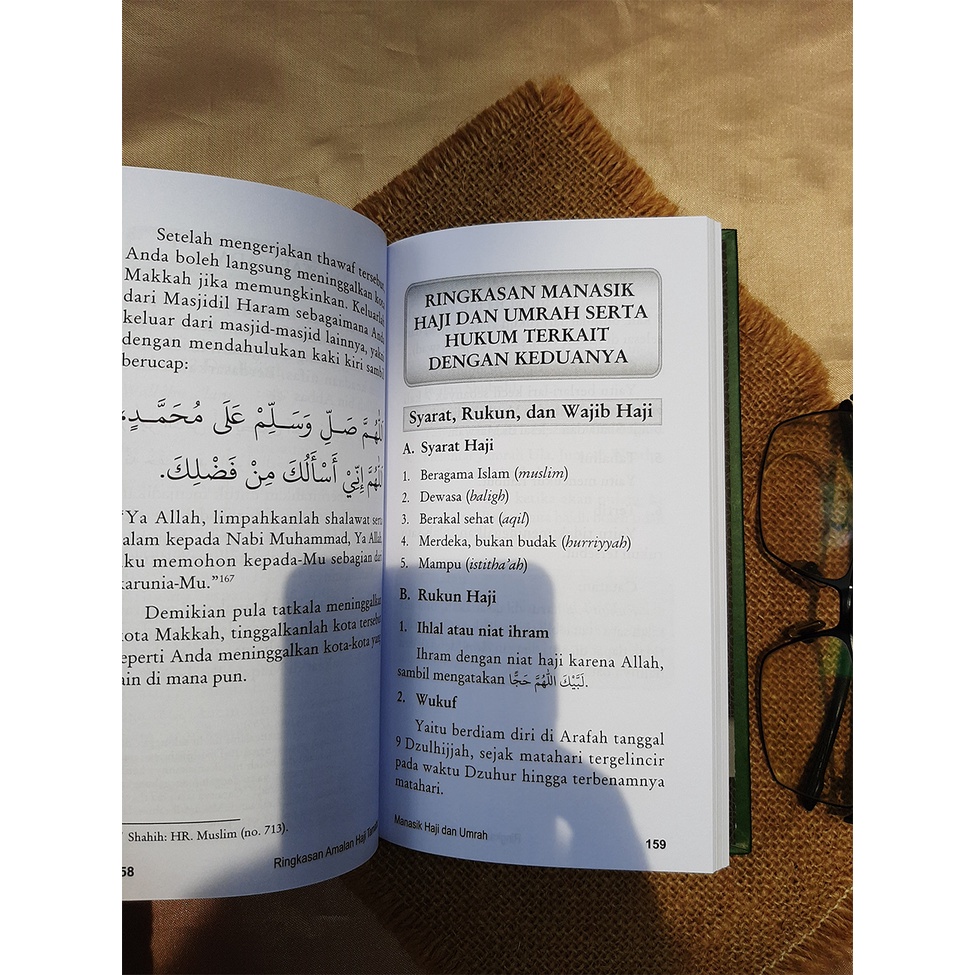 Setelah mengerjakan thawaf tersebut
Anda boleh langsung meninggalkan kota
Makkah jika memungkinkan. Keluarlah
dari Masjidil Haram sebagaimana Anda
keluar dari masjid-masjid lainnya, yakni
dengan mendahulukan kaki kiri sambil
berucap:
اَللّٰهُمَّ صَلِّ وَسَلِّمْ عَلَى مُحَمَّدٍ،
اَللّٰهُمَّ إِنِّيْ أَسْأَلُكَ مِنْ فَضْلِكَ.
"Ya Allah, limpahkanlah shalawat serta
salam kepada Nabi Muhammad, Ya Allah
aku memohon kepada-Mu sebagian dari
karunia-Mu."167
Demikian pula tatkala meninggalkan
kota Makkah, tinggalkanlah kota tersebut
seperti Anda meninggalkan kota-kota yang
lain di mana pun.
Shahih: HR. Muslim (no. 713).
58
Ringkasan Amalan Haji
RINGKASAN MANASIK
HAJI DAN UMRAH SERTA
HUKUM TERKAIT
DENGAN KEDUANYA
Syarat, Rukun, dan Wajib Haji
A. Syarat Haji
1. Beragama Islam (muslim)
2. Dewasa (baligh)
3. Berakal sehat (aqil)
4. Merdeka, bukan budak (hurriyyah)
5. Mampu (istitha'ah)
B. Rukun Haji
1. Ihlal atau niat ihram
Ihram dengan niat haji karena Allah,
sambil mengatakan لَبَّيْكَ اللّٰهُمَّ حَجًّا.
2. Wukuf
Yaitu berdiam diri di Arafah tanggal
9 Dzulhijjah, sejak matahari tergelincir
pada waktu Dzuhur hingga terbenamnya
matahari.
Manasik Haji dan Umrah
159